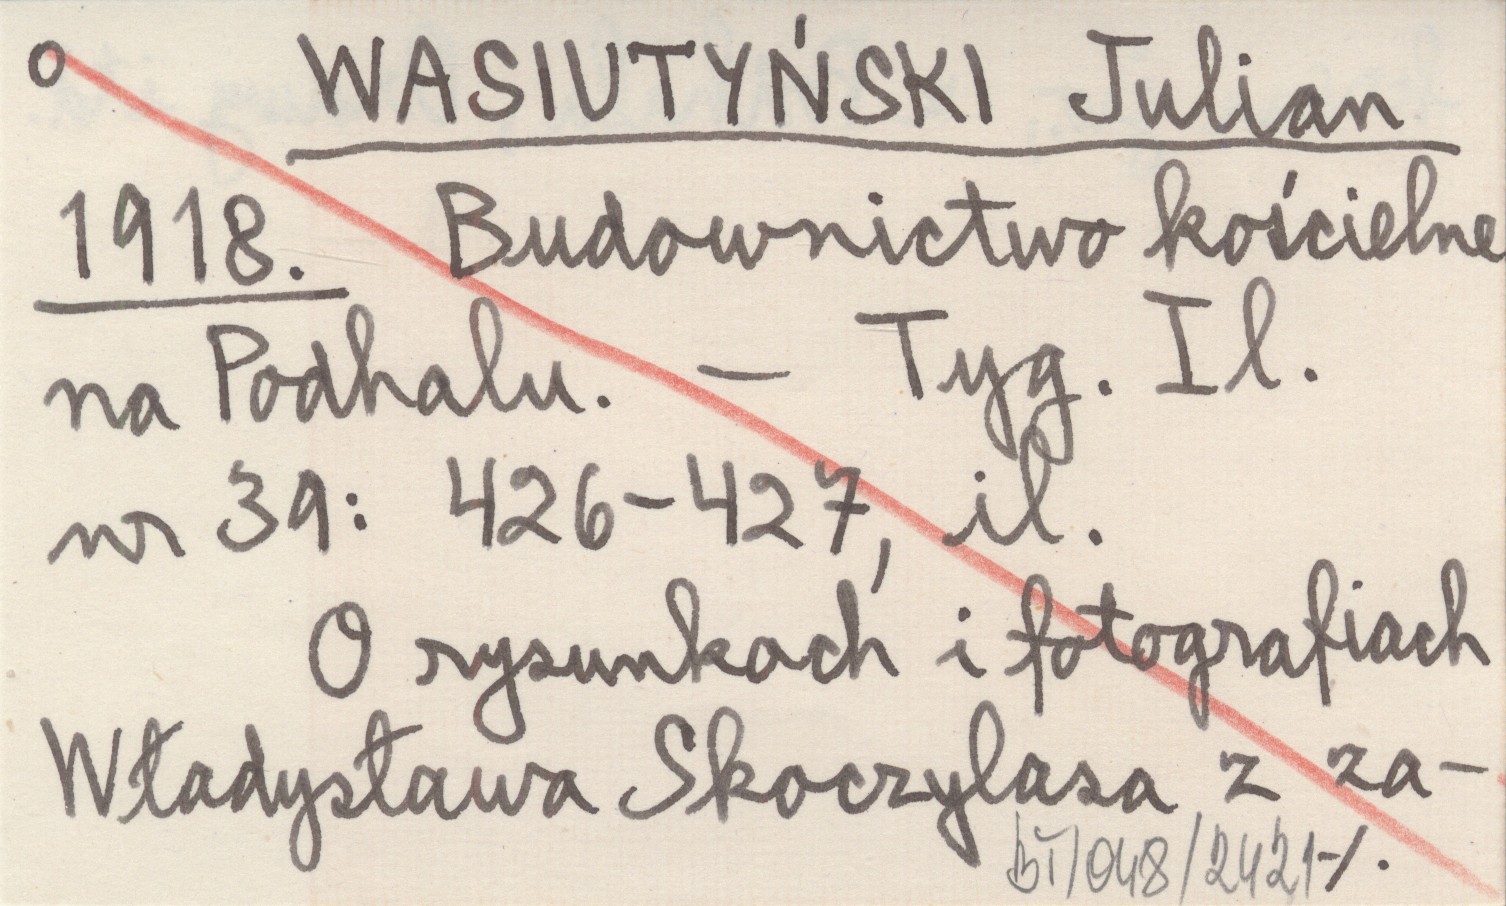 o WASIUTYŃSKI Julian
1918. Budownictwo kościelne
na Podhalu. — Tyg. Il.
nr 39: 426-427, il.
O rysunkach i fotografiach
Władysława Skoczylasa z za-
/.